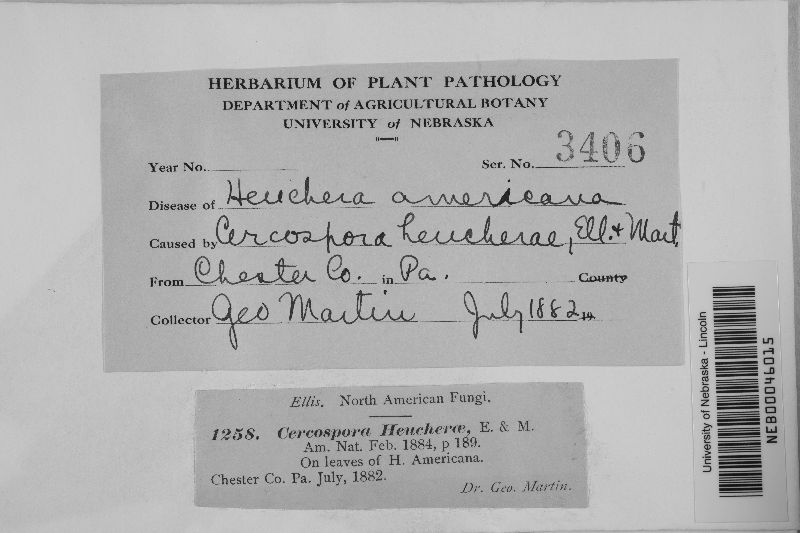 HERBARIUM OF PLANT PATHOLOGY
DEPARTMENT of AGRICULTURAL BOTANY
UNIVERSITY of NEBRASKA
Year No. Ser. No. 3406
Disease of Heuchera americana
Caused by Cercospora heucherae, Ell. & Mart.
From Chester Co. in Pa. County
Collector Geo Martin July 1882 19
Ellis. North American Fungi.
1258. Cercospora Heucheræ, E. & M.
Am. Nat. Feb. 1884, p 189.
On leaves of H. Americana.
Chester Co. Pa. July, 1882.
Dr. Geo. Martin.
University of Nebraska - Lincoln
NEB00046015